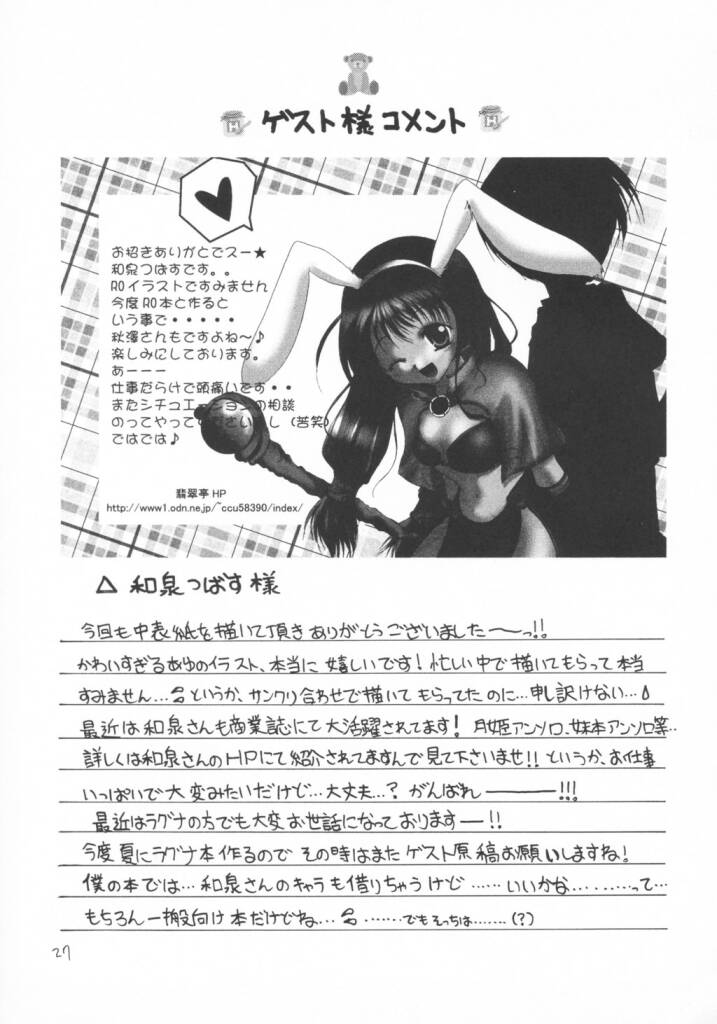 ゲスト様コメント
お招きありがとでスー★
和泉つばすです。。
ROイラストですみません
今度RO本と作ると
いう事で・・・・・
秋澤さんもですよね~♪
楽しみにしております。
あーーー
仕事だらけで頭痛いです・・
またシチュエーションの相談
のってやって さいまし(苦笑)
ではでは♪
翡翠亭HP
http://www1.odn.ne.jp/~ccu58390/index/
△ 和泉つばす様
今回も中表紙を描いて頂きありがとうございました――っ!!
かわいすぎるあゆのイラスト、本当に嬉しいです!忙しい中で描いてもらって本当
すみません…というか、サンクリ合わせで描いてもらってたのに…申し訳けない…
最近は和泉さんも商業誌にて大活躍されてます!月姫アンソロ、妹本アンソロ等…
詳しくは和泉さんのHPにて紹介されてますんで見て下さいませ!!というか、お仕事
いっぱいで大変みたいだけど…大丈夫…?がんばれ―――!!!
最近はラグナの方でも大変お世話になっております―!!
今度夏にラグナ本作るのでその時はまたゲスト原稿お願いしますね!
僕の本では…和泉さんのキャラも借りちゃうけど……いいかな………って…
もちろん一搬向け本だけどね………でもそっちは……(?)
27